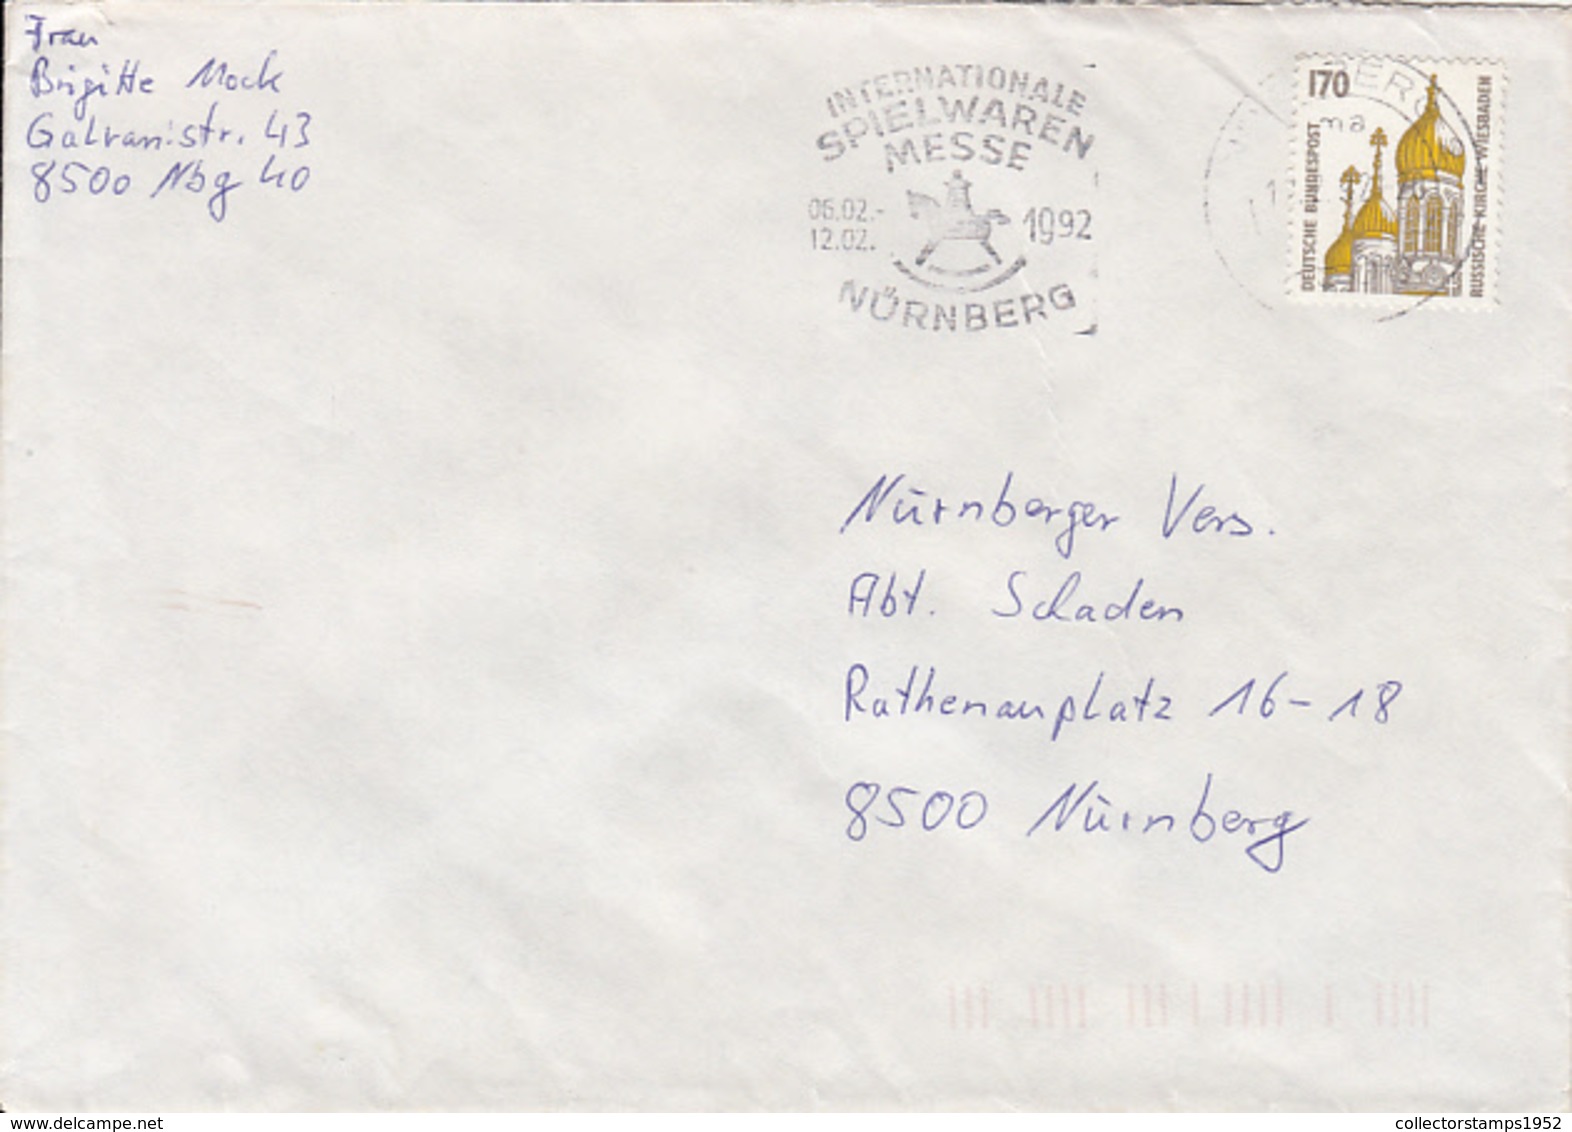 Frau
Brigitte Mock
Galvanistr. 43
8500 Nbg 40
INTERNATIONALE
SPIELWAREN
MESSE
06.02.-
12.02.
1992
NÜRNBERG
170
DEUTSCHE BUNDESPOST
RUSSISCHE KIRCHE WIESBADEN
Nürnberger Vers.
Abt. Schaden
Rathenauplatz 16-18
8500 Nürnberg
www.delcampe.net
collectorstamps1952